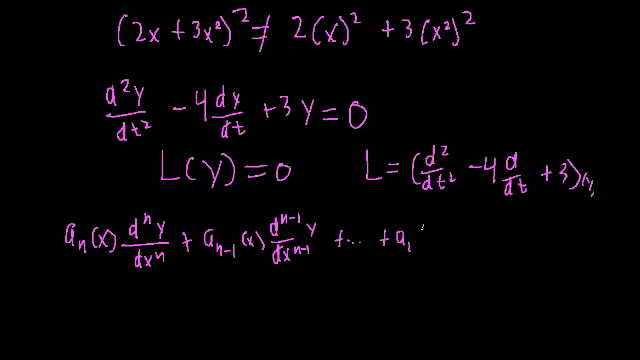 (2x + 3x²)² ≠ 2(x)² + 3(x²)²
d²y/dt² - 4 dy/dt + 3y = 0
L(y) = 0 L = (d²/dt² - 4 d/dt + 3)(y)
aₙ(x) dⁿy/dxⁿ + aₙ₋₁(x) dⁿ⁻¹y/dxⁿ⁻¹ + ... + a₁